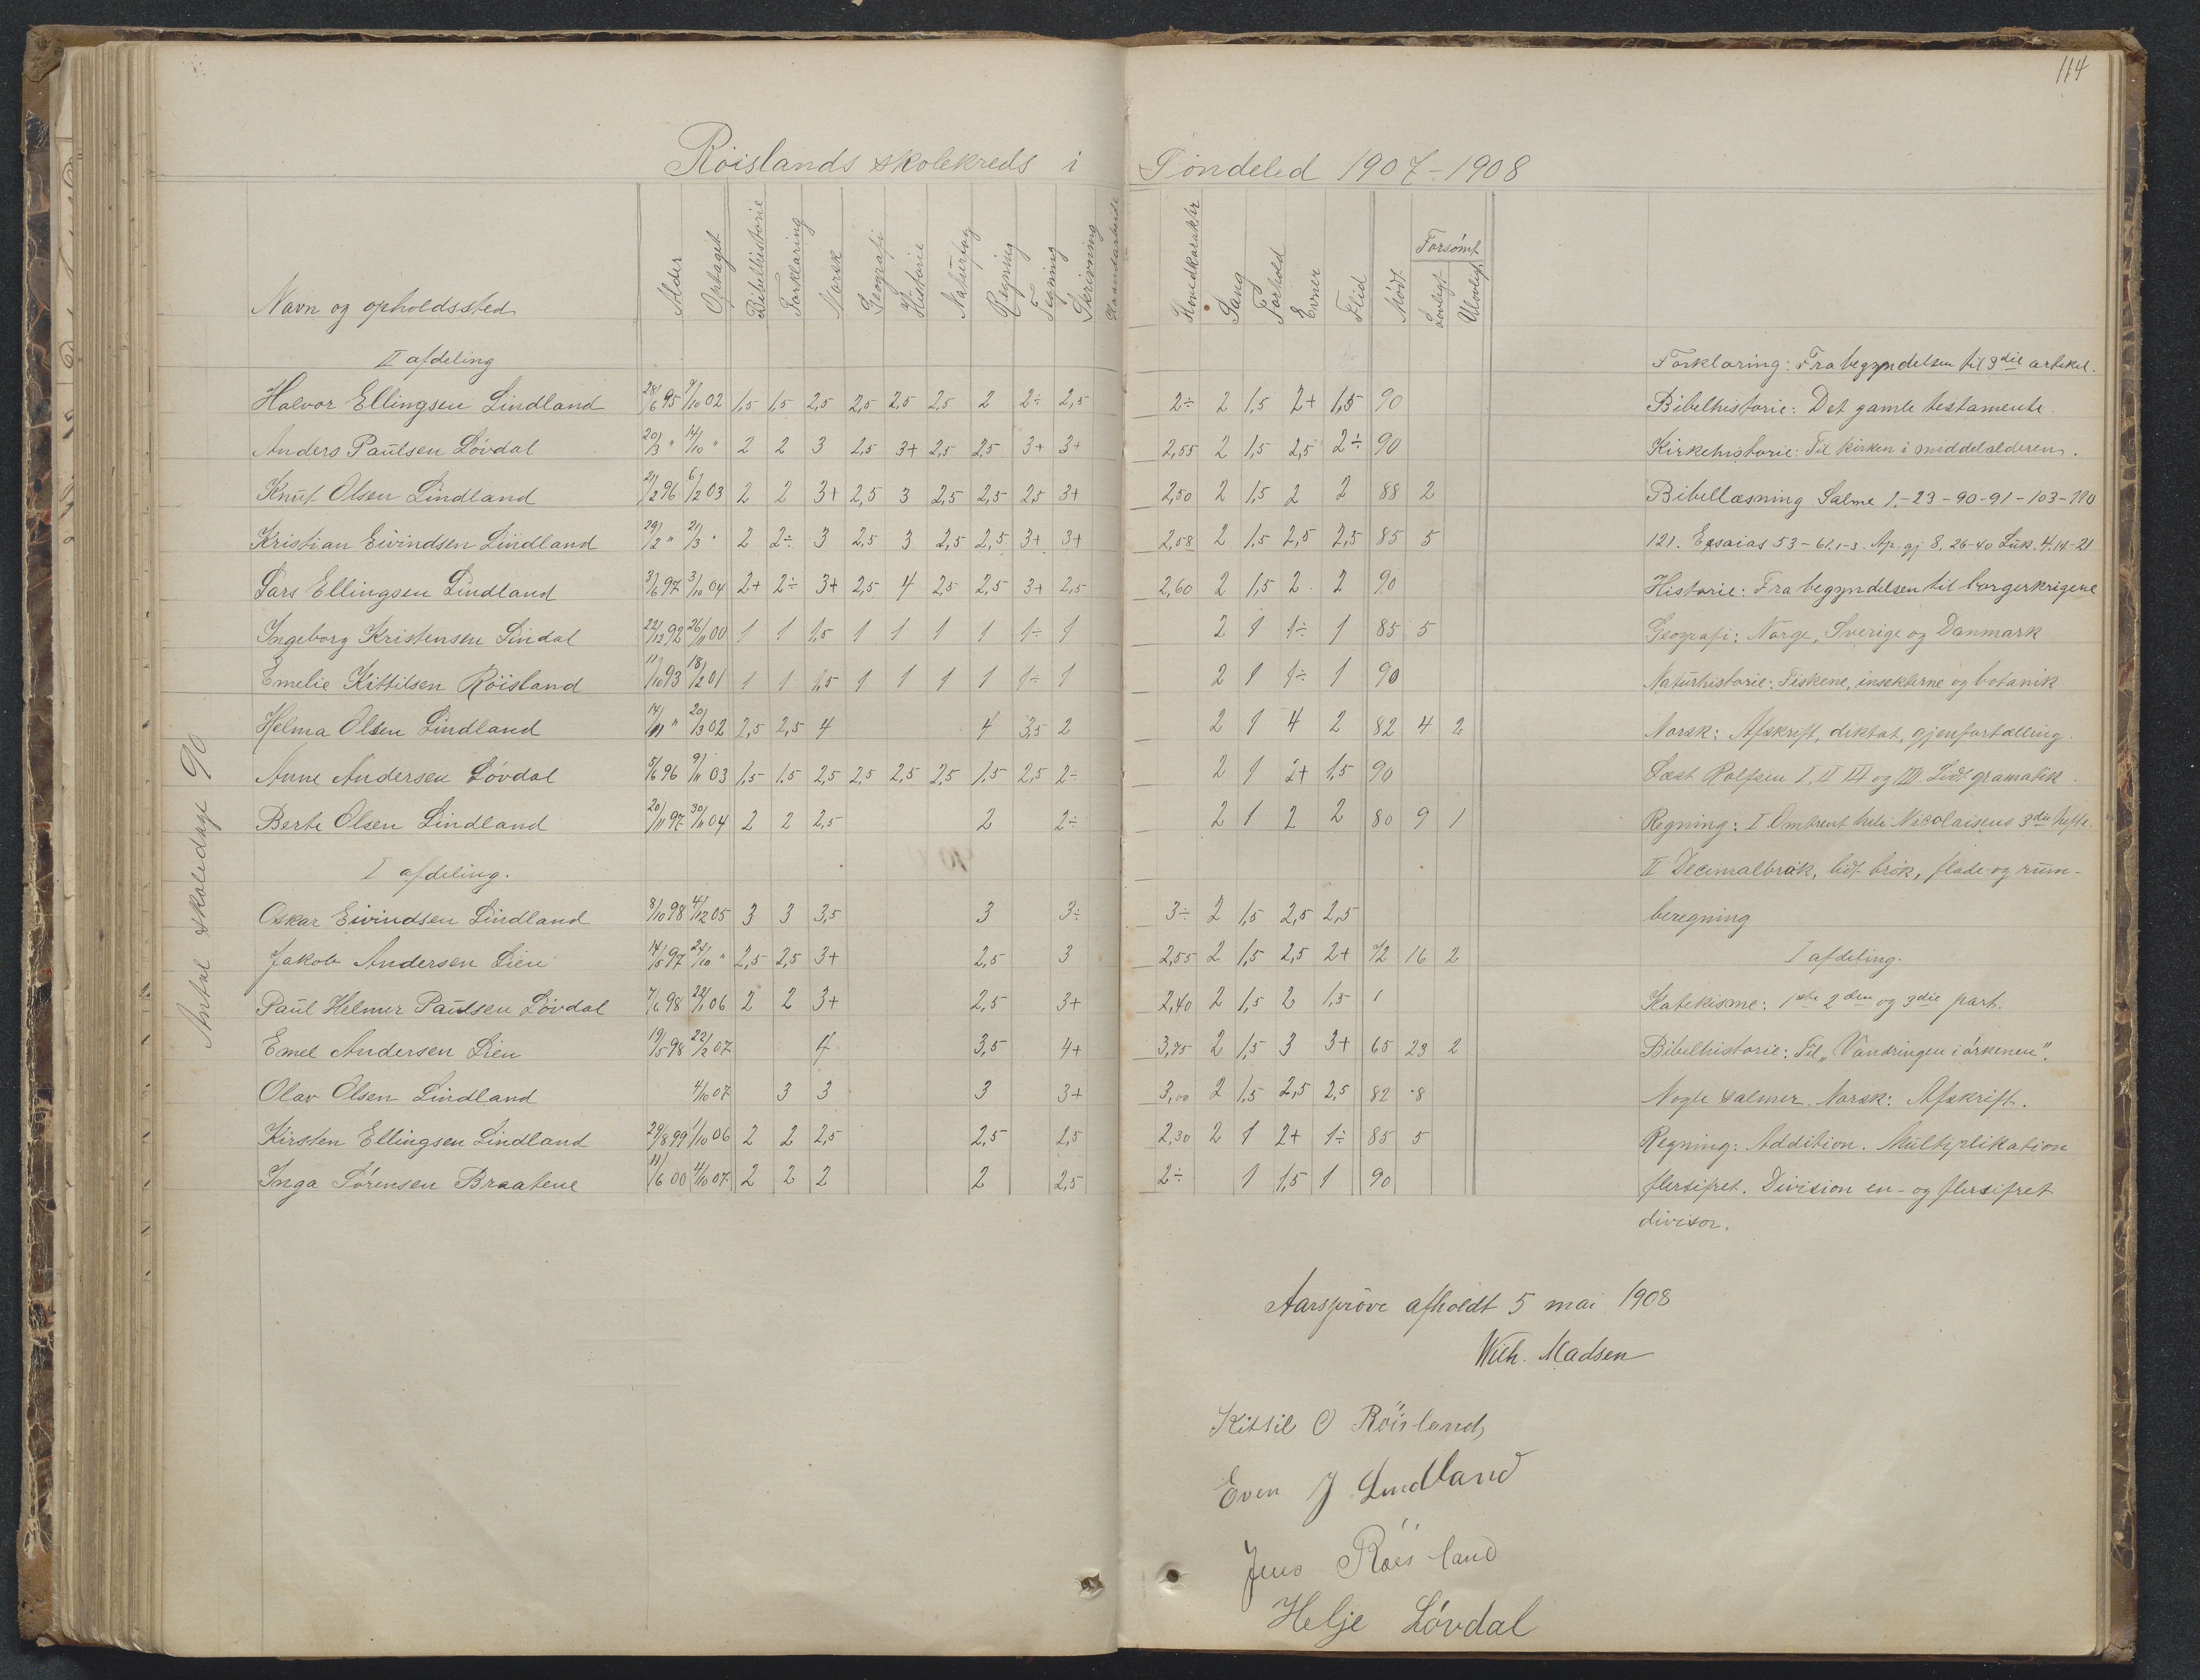 114
Röislands skolekreds i Söndeled 1907-1908
Navn og opholdssted Alder Optaget Bibelhistorie Forklaring Norsk Geografi Historie Naturfag Regning Tegning Skrivning Haandarbeide Hovedkarakter Sang Forhold Evner Flid Mödt Forsömt Lovligt Ulovligt
II afdeling
Halvor Ellingsen Lindland 28/6 95 9/10 02 1,5 1,5 2,5 2,5 2,5 2,5 2 2÷ 2,5 2÷ 2 1,5 2+ 1,5 90
Anders Paulsen Lövdal 20/3 " 14/10 " 2 2 3 2,5 3+ 2,5 2,5 3+ 3+ 2,55 2 1,5 2,5 2÷ 90
Knut Olsen Lindland 21/2 96 6/2 03 2 2 3+ 2,5 3 2,5 2,5 2,5 3+ 2,50 2 1,5 2 2 88 2
Kristian Eivindsen Lindland 29/2 " 21/3 " 2 2÷ 3 2,5 3 2,5 2,5 3+ 3+ 2,58 2 1,5 2,5 2,5 85 5
Lars Ellingsen Lindland 3/6 97 3/10 04 2+ 2÷ 3+ 2,5 4 2,5 2,5 3+ 2,5 2,60 2 1,5 2 2 90
Ingeborg Kristensen Lindal 22/12 92 26/11 00 1 1 1,5 1 1 1 1 1÷ 1 2 1 1÷ 1 85 5
Emelie Kittilsen Röisland 11/10 93 18/2 01 1 1 1,5 1 1 1 1 1÷ 1 2 1 1÷ 1 90
Helma Olsen Lindland 14/11 " 20/3 02 2,5 2,5 4 4 3,5 2 2 1 4 2 82 4 2
Anne Andersen Lövdal 5/6 96 9/11 03 1,5 1,5 2,5 2,5 2,5 2,5 1,5 2,5 2÷ 2 1 2+ 1,5 90
Berte Olsen Lindland 20/11 97 30/11 04 2 2 2,5 2 2÷ 2 1 2 2 80 9 1
I afdeling.
Oskar Eivindsen Lindland 8/10 98 4/12 05 3 3 3,5 3 3÷ 3÷ 2 1,5 2,5 2,5
Jakob Andersen Lien 14/5 97 24/10 " 2,5 2,5 3+ 2,5 3 2,55 2 1,5 2,5 2+ 72 16 2
Paul Helmer Paulsen Lövdal 7/6 98 22/1 06 2 2 3+ 2,5 3+ 2,40 2 1,5 2 1,5 1
Emel Andersen Lien 19/5 98 22/2 07 4 3,5 4+ 3,75 2 1,5 3 3+ 65 23 2
Olav Olsen Lindland 4/10 07 3 3 3 3+ 3,00 2 1,5 2,5 2,5 82 8
Kirsten Ellingsen Lindland 29/8 99 1/10 06 2 2 2,5 2,5 2,5 2,30 2 1 2+ 1÷ 85 5
Inga Sörensen Braatene 11/6 00 4/10 07 2 2 2 2 2,5 2÷ 1 1,5 1 90
Antal skoledage 90
Forklaring: Fra begyndelsen til 3die artikel.
Bibelhistorie: Det gamle testamente.
Kirkehistorie: Til kirken i middelalderen.
Bibellæsning. Salme 1-23-90-91-103-110
121. Esaias 53-61.1-3. Ap. gj 8. 26-40 Luk. 4.14-21
Historie: Fra begyndelsen til borgerkrigene
Geografi: Norge, Sverige og Danmark
Naturhistorie: Fiskene, insekterne og botanik
Norsk: Afskrift, diktat, gjenfortælling.
Læst Rolfsen I, II III og IV. Lidt gramatik.
Regning: I Omtrent hele Nicolaisens 3die hefte.
II Decimalbrøk, lidt brök, flade- og rum-
beregning
I afdeling.
Katekisme: 1ste 2den og 3die part.
Bibelhistorie: Til "Vandringen i örkenen".
Nogle salmer. Norsk: Afskrift.
Regning: Addition. Multiplikation
flersifret. Division en- og flersifret
divisor.
Aarspröve afholdt 5 mai 1908
Wilh. Madsen
Kittil O Röisland,
Even J Lindland
Jens Röisland
Helje Lövdal